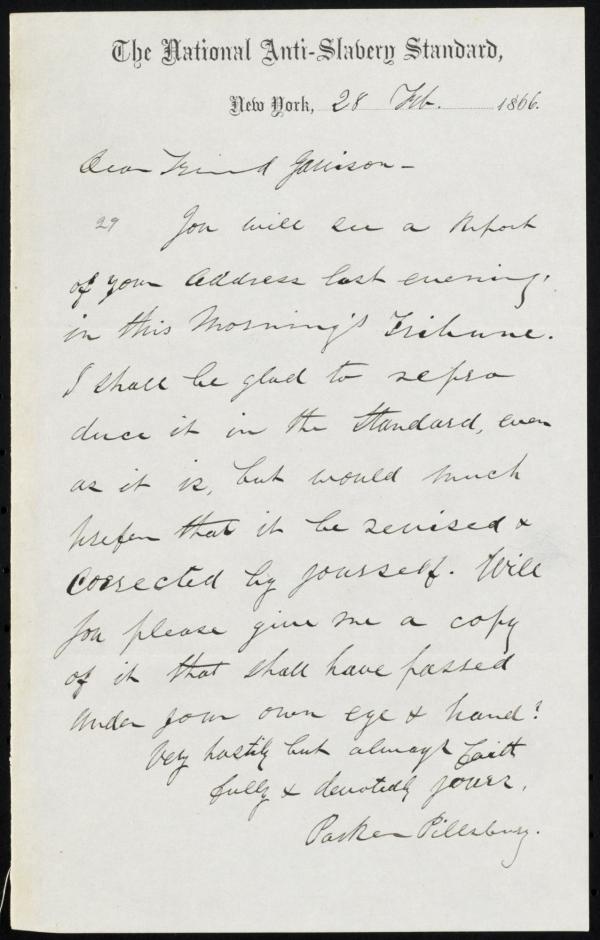 The National Anti-Slavery Standard,
New York, 28 Feb. 1866.
Dear Friend Garrison –
29 You will see a report
of your address last evening,
in this Morning's Tribune.
I shall be glad to repro
duce it in the Standard, even
as it is, but would much
prefer that it be revised &
corrected by yourself. Will
you please give me a copy
of it that shall have passed
under your own eye & hand?
Very hastily but always faith
fully & devotedly yours,
Parker Pillsbury.